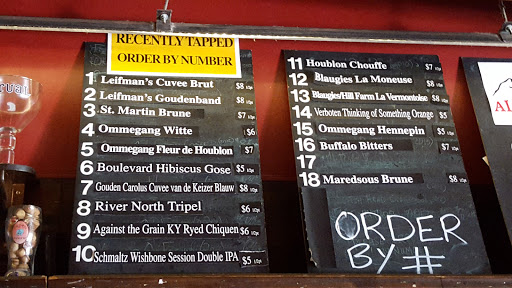 RECENTLY TAPPED
ORDER BY NUMBER
1 Leifman's Cuvee Brut $8 1/2pt
2 Leifman's Goudenband $8 1/2pt
3 St. Martin Brune $7 1/2pt
4 Ommegang Witte $6
5 Ommegang Fleur de Houblon $7
6 Boulevard Hibiscus Gose $5 1/2pt
7 Gouden Carolus Cuvee van de Keizer Blauw $8 1/2pt
8 River North Tripel $6 1/2pt
9 Against the Grain KY Ryed Chiquen $6 1/2pt
10 Schmaltz Wishbone Session Double IPA $5 1/2pt
11 Houblon Chouffe $7
12 Blaugies La Moneuse $8
13 Blaugies/Hill Farm La Vermontoise $8
14 Verboten Thinking of Something Orange $5
15 Ommegang Hennepin $7
16 Buffalo Bitters $7
17
18 Maredsous Brune $8
ORDER
BY #
AL